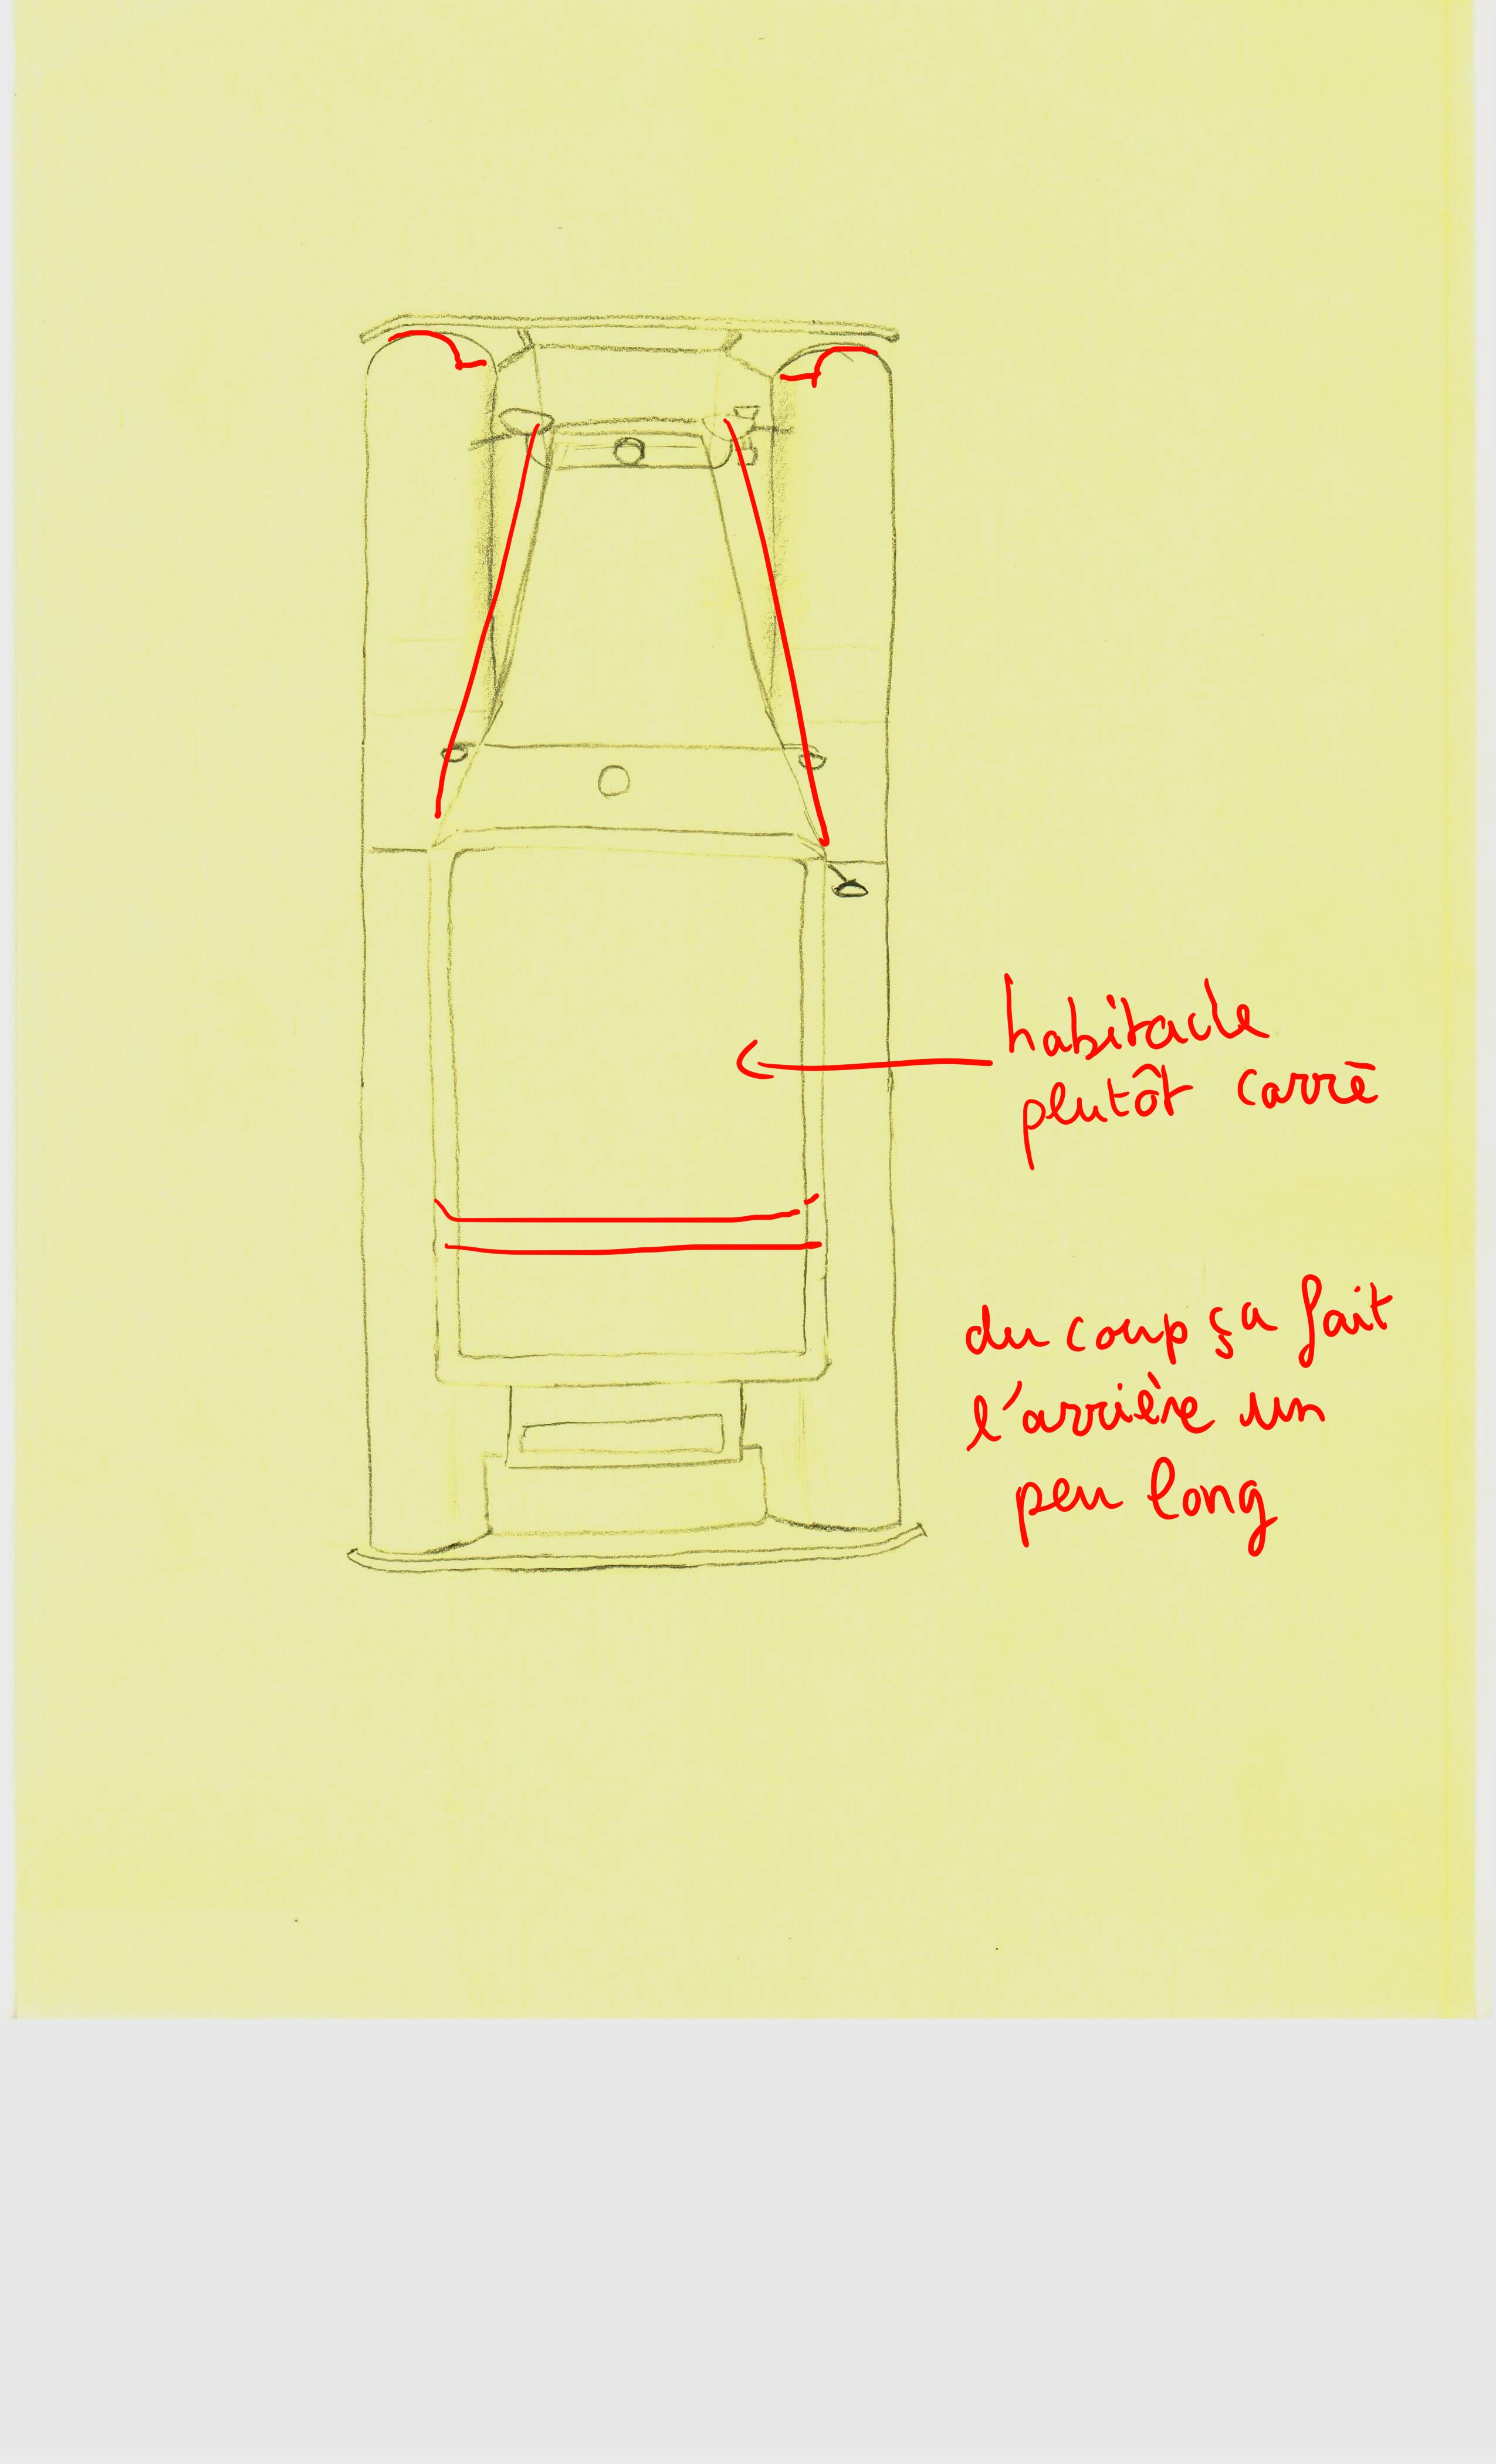 habitacle
plutôt carré
du coup ça fait
l'arrière un
peu long